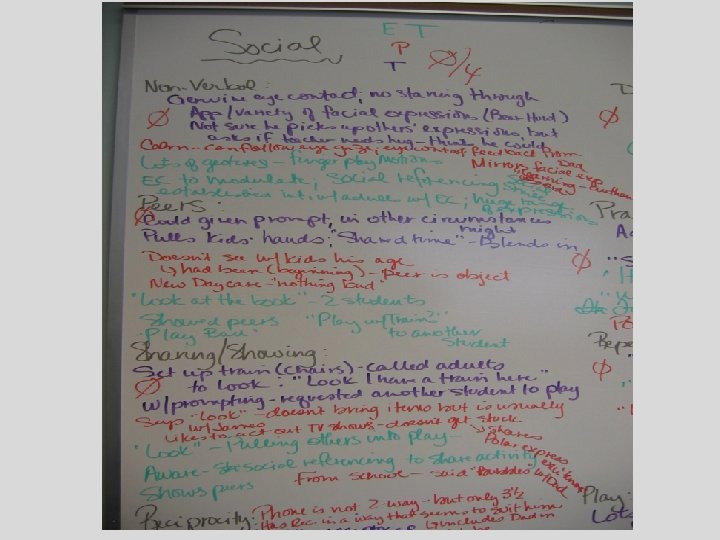 Social
E T
P
T
Ø/4
Non-Verbal:
Genuine eye contact; no staring through
Ø App/variety of facial expressions (Bear Hunt)
Not sure he picks up others' expressions, but
asks if teacher needs hug - think he could
Calm... can follow eye gaze; eye contact feedback from Dad
Lots of gestures - finger play motions
Mirrors facial exp
EC to modulate, social referencing
w/ EC; huge range of expressions
Peers:
Ø Could given prompt, in other circumstances
might
Pulls kids' hands; "Shared time" - Blends in
Doesn't see w/ kids his age
↳ had been (beginning) - peer is object
New Daycare - "nothing bad"
"Look at the book" - 2 students
Showed peers "Play w/ train?"
"Play Ball" to another
student
Sharing/Showing:
Set up train (chairs) - called adults
Ø to look: "Look I have a train here."
w/prompting - requested another student to play
Says "look" - doesn't bring items but is usually
w/ James
Likes to act out TV shows - doesn't get stuck
↳ shares
Polar express
"Look" - Pulling others into play -
Aware - social referencing to share activity
Shows peers
From school - said "Bubbles" w/ Dad
Reciprocity: Phone is not 2 way - but only 3½
Has Rec. in a way that seems to suit him
(includes Dad in
Ø
Ø
Pra
Ø
Repe
Ø
Play:
Lots